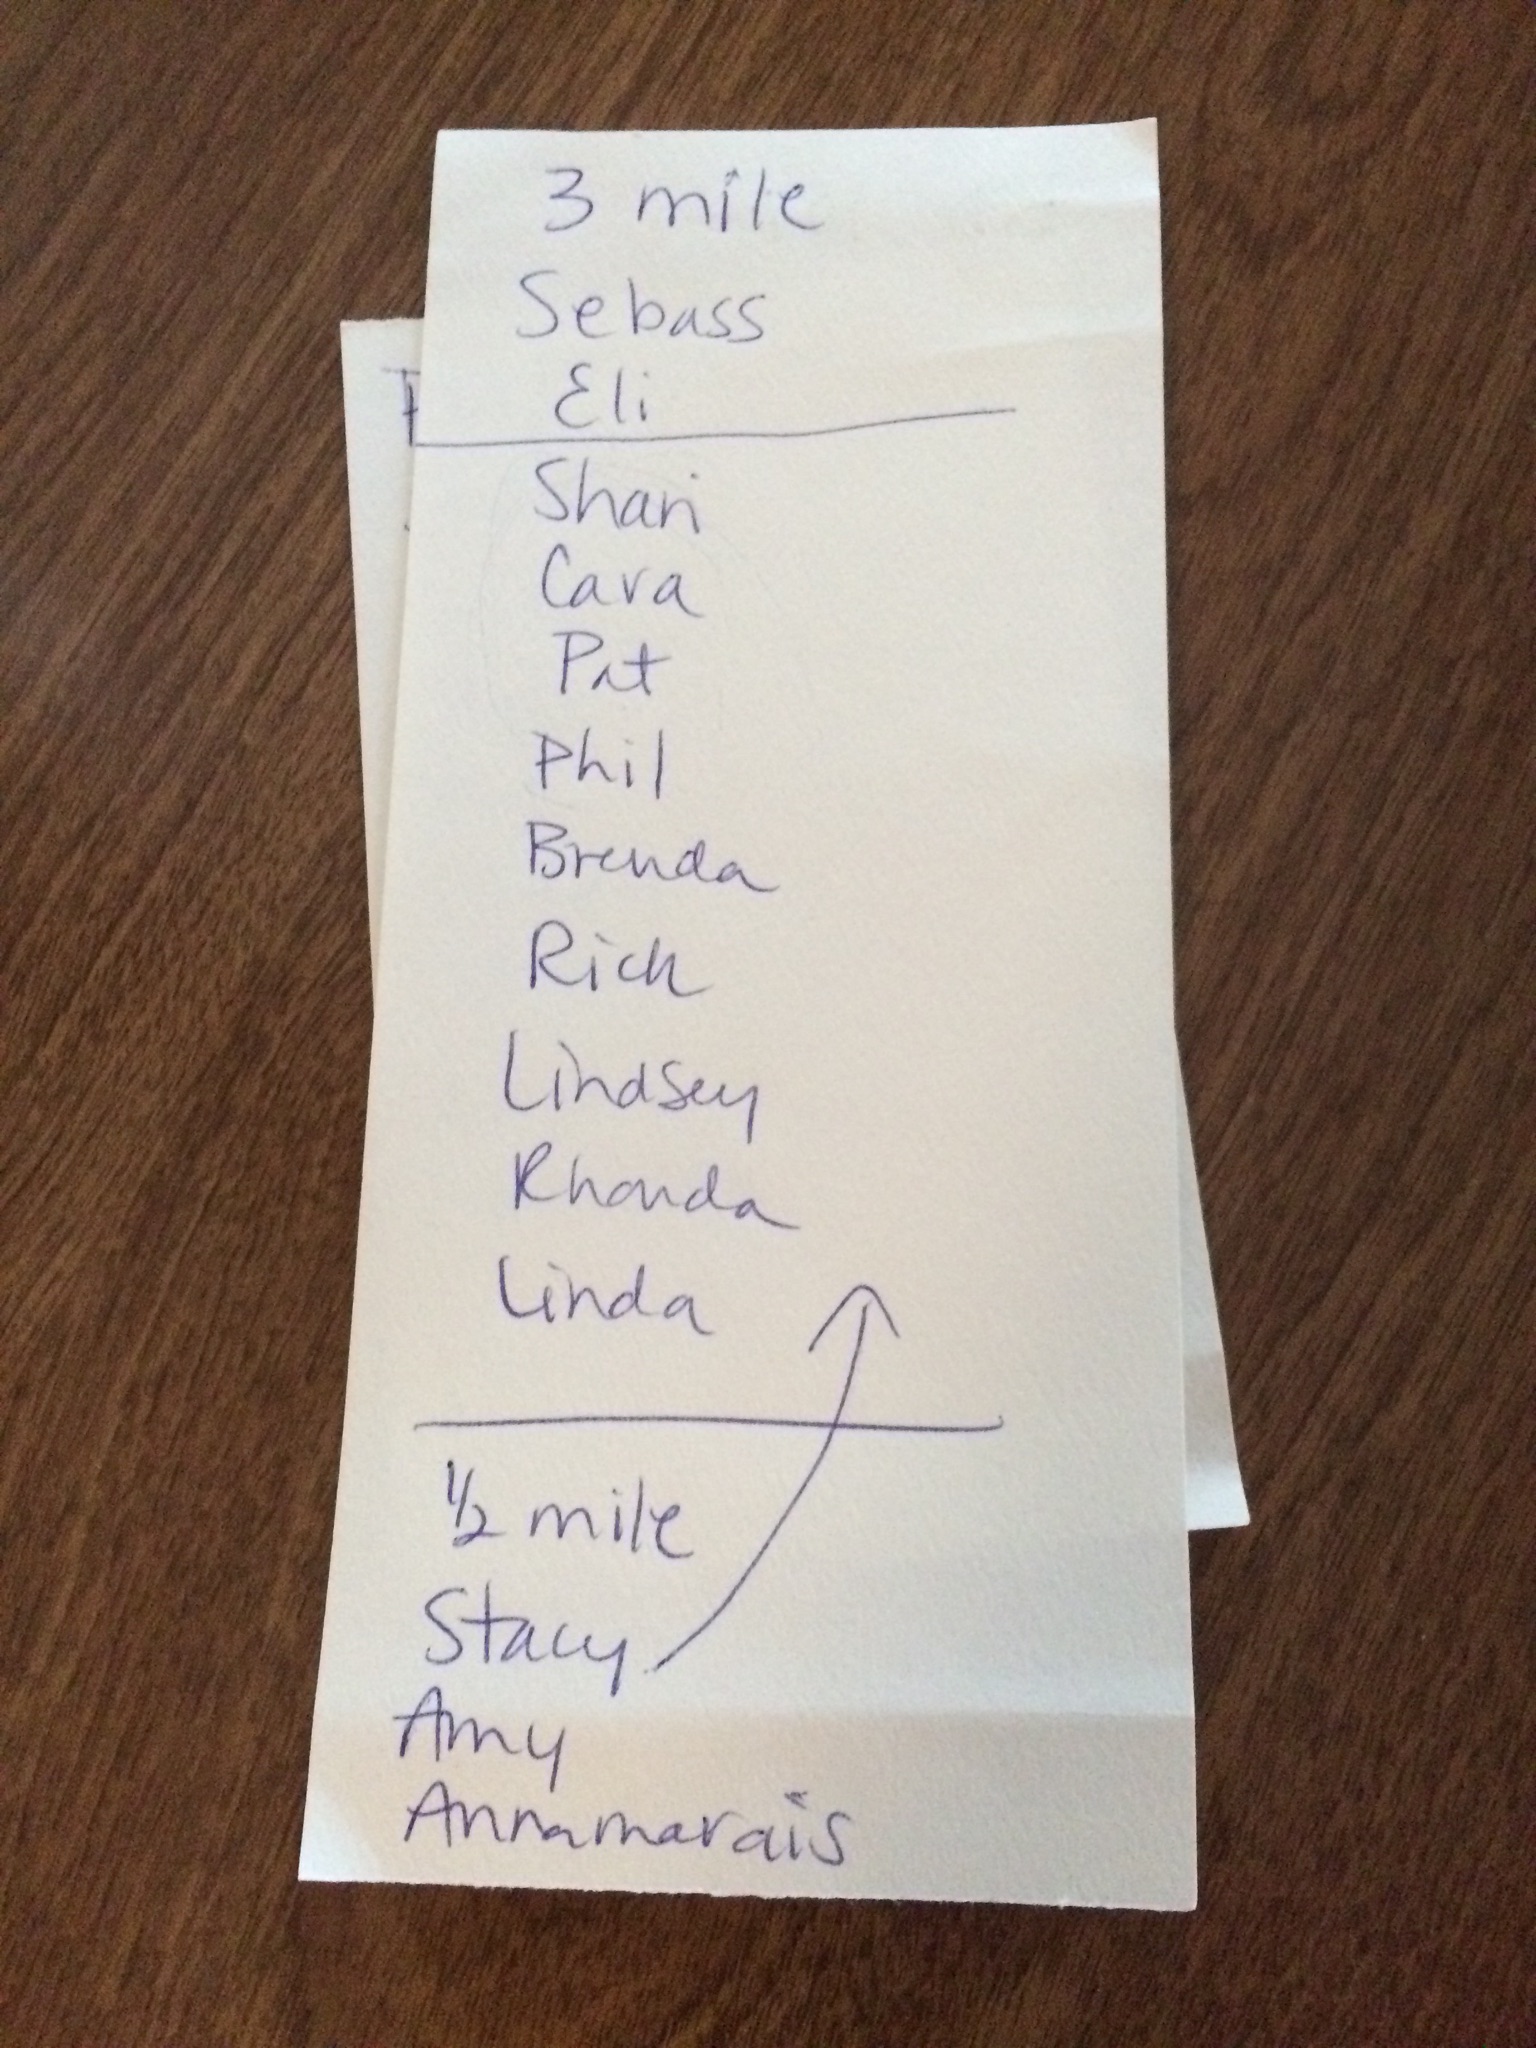 3 mile
Sebass
Eli
Shari
Cara
Pat
Phil
Brenda
Rich
Lindsey
Rhonda
Linda
1/2 mile
Stacy
Amy
Annamarais